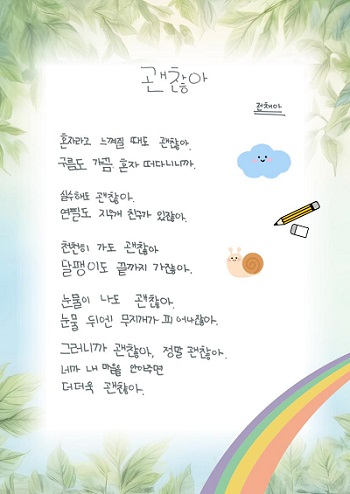 괜찮아
전채아
혼자라고 느껴질 때도 괜찮아.
구름도 가끔 혼자 떠다니니까.
실수해도 괜찮아.
연필도 지우개 친구가 있잖아.
천천히 가도 괜찮아
달팽이도 끝까지 가잖아.
눈물이 나도 괜찮아.
눈물 뒤엔 무지개가 피어나잖아.
그러니까 괜찮아, 정말 괜찮아.
네가 내 마음을 안아주면
더더욱 괜찮아.